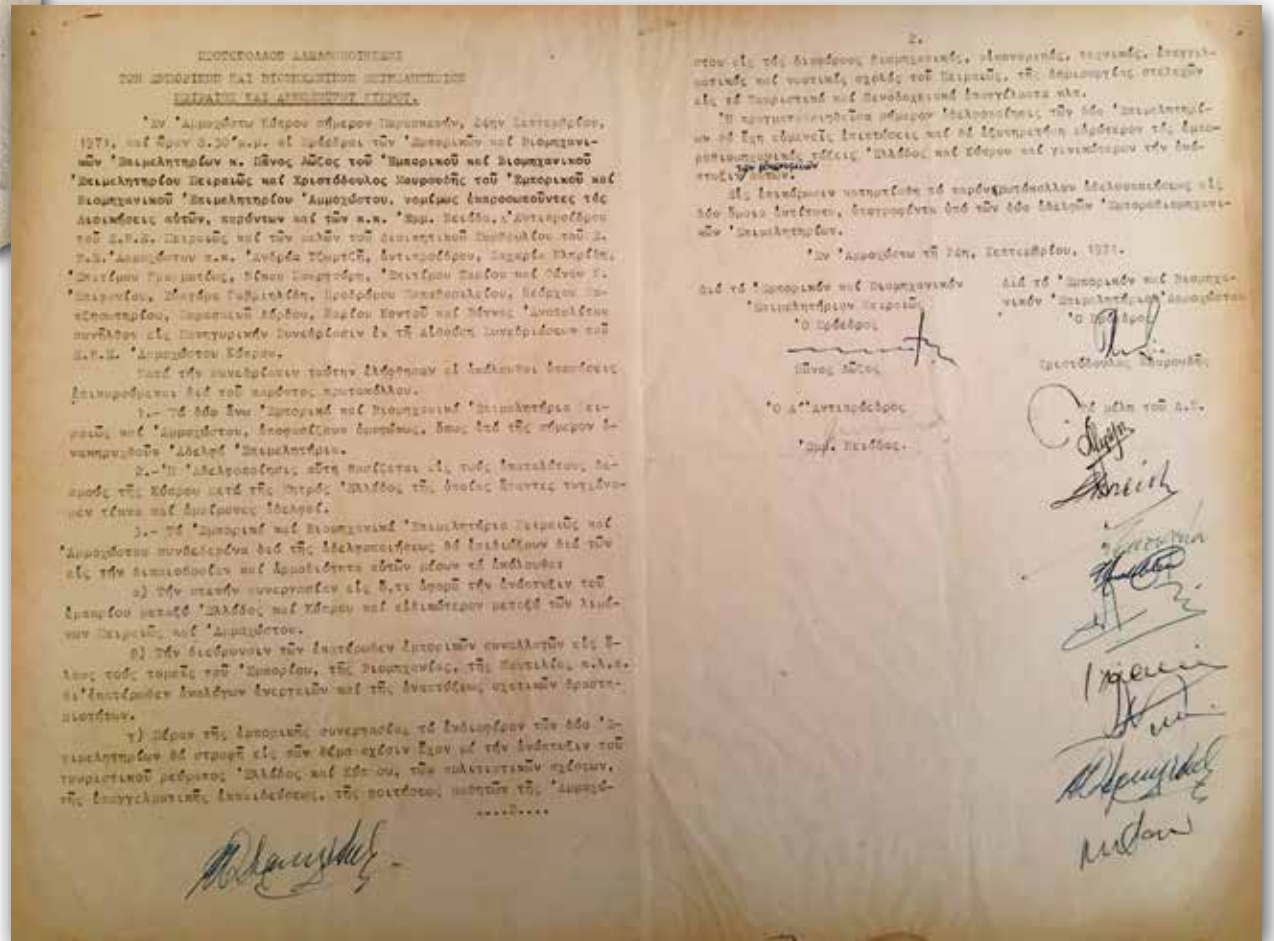 ΠΡΩΤΟΚΟΛΛΟΝ ΑΔΕΛΦΟΠΟΙΗΣΕΩΣ
ΤΩΝ ΕΜΠΟΡΙΚΩΝ ΚΑΙ ΒΙΟΜΗΧΑΝΙΚΩΝ ΕΠΙΜΕΛΗΤΗΡΙΩΝ
ΠΕΙΡΑΙΩΣ ΚΑΙ ΑΜΜΟΧΩΣΤΟΥ ΚΥΠΡΟΥ.
Ἐν Ἀμμοχώστῳ Κύπρου σήμερον Παρασκευήν, 24ην Σεπτεμβρίου,
1971, καί ὥραν 8.30'μ.μ. οἱ Πρόεδροι τῶν Ἐμπορικῶν καί Βιομηχανι-
κῶν Ἐπιμελητηρίων κ. Πᾶνος Λῶζος τοῦ Ἐμπορικοῦ καί Βιομηχανικοῦ
Ἐπιμελητηρίου Πειραιῶς καί Χριστόδουλος Μαυρουδῆς τοῦ Ἐμπορικοῦ καί
Βιομηχανικοῦ Ἐπιμελητηρίου Ἀμμοχώστου, νομίμως ἐκπροσωποῦντες τάς
Διοικήσεις αὐτῶν, παρόντων καί τῶν κ.κ. Ἐμμ. Νειάδα, Α'Ἀντιπροέδρου
τοῦ Ε.Β.Ε. Πειραιῶς καί τῶν μελῶν τοῦ Διοικητικοῦ Συμβουλίου τοῦ Ε.
Β.Ε.Ἀμμοχώστου κ.κ. Ἀνδρέα Τζωρτζῆ, ἀντιπροέδρου, Ζαχαρία
Ἐπιτίμου Γραμματέως, Νίκου Ἐπιτίμου Ταμίου καί
Ἐπιφανίου, Εὐαγόρα Γαβριηλίδη, Προδρόμου Παπαβασιλείου, Νεάρχου Χα-
τζησωτηρίου, Παρασκευᾶ Λόρδου, Μαρίου Κοντοῦ καί Ἀνατολίτου
συνῆλθον εἰς Πανηγυρικήν Συνεδρίασιν ἐν τῇ Αἰθούσῃ Συνεδριάσεων τοῦ
Ε.Β.Ε. Ἀμμοχώστου Κύπρου.
Κατά τήν συνεδρίασιν ταύτην ἐλήφθησαν αἱ ἀκόλουθοι ἀποφάσεις
ἐπικυρούμεναι διά τοῦ παρόντος πρωτοκόλλου.
1.- Τά δύο ἄνω Ἐμπορικά καί Βιομηχανικά Ἐπιμελητήρια Πει-
ραιῶς καί Ἀμμοχώστου, ἀποφασίζουν ὁμοφώνως, ὅπως ἀπό τῆς σήμερον ἀ-
νακηρυχθοῦν Ἀδελφά Ἐπιμελητήρια.
2.-Ἡ Ἀδελφοποίησις αὕτη βασίζεται εἰς τούς ἀκαταλύτους δε-
σμούς τῆς Κύπρου μετά τῆς Μητρός Ἑλλάδος τῆς ὁποίας ἅπαντες τυγχάνο-
μεν τέκνα καί ὁμαίμονες ἀδελφοί.
3.- Τά Ἐμπορικά καί Βιομηχανικά Ἐπιμελητήρια Πειραιῶς καί
Ἀμμοχώστου συνδεδεμένα διά τῆς ἀδελφοποιήσεως θά ἐπιδιώξουν διά τῶν
εἰς τήν δικαιοδοσίαν καί ἁρμοδιότητα αὐτῶν μέσων τά ἀκόλουθα:
α) Τήν στενήν συνεργασίαν εἰς ὅ,τι ἀφορᾶ τήν ἀνάπτυξιν τοῦ
ἐμπορίου μεταξύ Ἑλλάδος καί Κύπρου καί εἰδικώτερον μεταξύ τῶν λιμέ-
νων Πειραιῶς καί Ἀμμοχώστου.
β) Τήν διεύρυνσιν τῶν ἑκατέρωθεν ἐμπορικῶν συναλλαγῶν εἰς ὅ-
λους τούς τομεῖς τοῦ Ἐμπορίου, τῆς Βιομηχανίας, τῆς Ναυτιλίας κ.λ.π.
δι'ἑκατέρωθεν ἀναλόγων ἐνεργειῶν καί τῆς ἀναπτύξεως σχετικῶν δραστη-
ριοτήτων.
γ) Πέραν τῆς ἐμπορικῆς συνεργασίας τό ἐνδιαφέρον τῶν δύο Ἐ-
πιμελητηρίων θά στραφῇ εἰς πᾶν θέμα σχέσιν ἔχον μέ τήν ἀνάπτυξιν τοῦ
τουριστικοῦ ρεύματος Ἑλλάδος καί Κύπρου, τῶν πολιτιστικῶν σχέσεων,
τῆς ἐπαγγελματικῆς ἐκπαιδεύσεως, τῆς φοιτήσεως μαθητῶν τῆς Ἀμμοχώ-
2.
στου εἰς τάς διαφόρους βιομηχανικάς, οἰκονομικάς, τεχνικάς, ἐπαγγελ-
ματικάς καί ναυτικάς σχολάς τοῦ Πειραιῶς, τῆς δημιουργίας στελεχῶν
εἰς τά Τουριστικά καί Ξενοδοχειακά ἐπαγγέλματα κλπ.
Ἡ πραγματοποιηθεῖσα σήμερον ἀδελφοποίησις τῶν δύο Ἐπιμελητηρί-
ων θά ἔχῃ εὐμενεῖς ἐπιπτώσεις καί θά ἐξυπηρετήσῃ εὐρύτερον τάς ἐμπο-
ροβιομηχανικάς τάξεις Ἑλλάδος καί Κύπρου καί γενικώτερον τήν ἀνά-
πτυξιν αὐτῶν.
Εἰς ἐπικύρωσιν κατηρτίσθη τό παρόν πρωτόκολλον ἀδελφοποιήσεως εἰς
δύο ὅμοια ἀντίτυπα, ὑπογραφέντα ὑπό τῶν δύο ἀδελφῶν Ἐμποροβιομηχανι-
κῶν Ἐπιμελητηρίων.
Ἐν Ἀμμοχώστῳ τῇ 24ῃ, Σεπτεμβρίου, 1971.
Διά τό Ἐμπορικόν καί Βιομηχανικόν
Ἐπιμελητήριον Πειραιῶς
Ὁ Πρόεδρος
Πᾶνος Λῶζος
Ὁ Α'Ἀντιπρόεδρος
Ἐμμ. Νειάδας.
Διά τό Ἐμπορικόν καί Βιομηχα-
νικόν Ἐπιμελητήριον Ἀμμοχώστου
Ὁ Πρόεδρος
Χριστόδουλος Μαυρουδῆς
Τά μέλη τοῦ Δ.Σ.